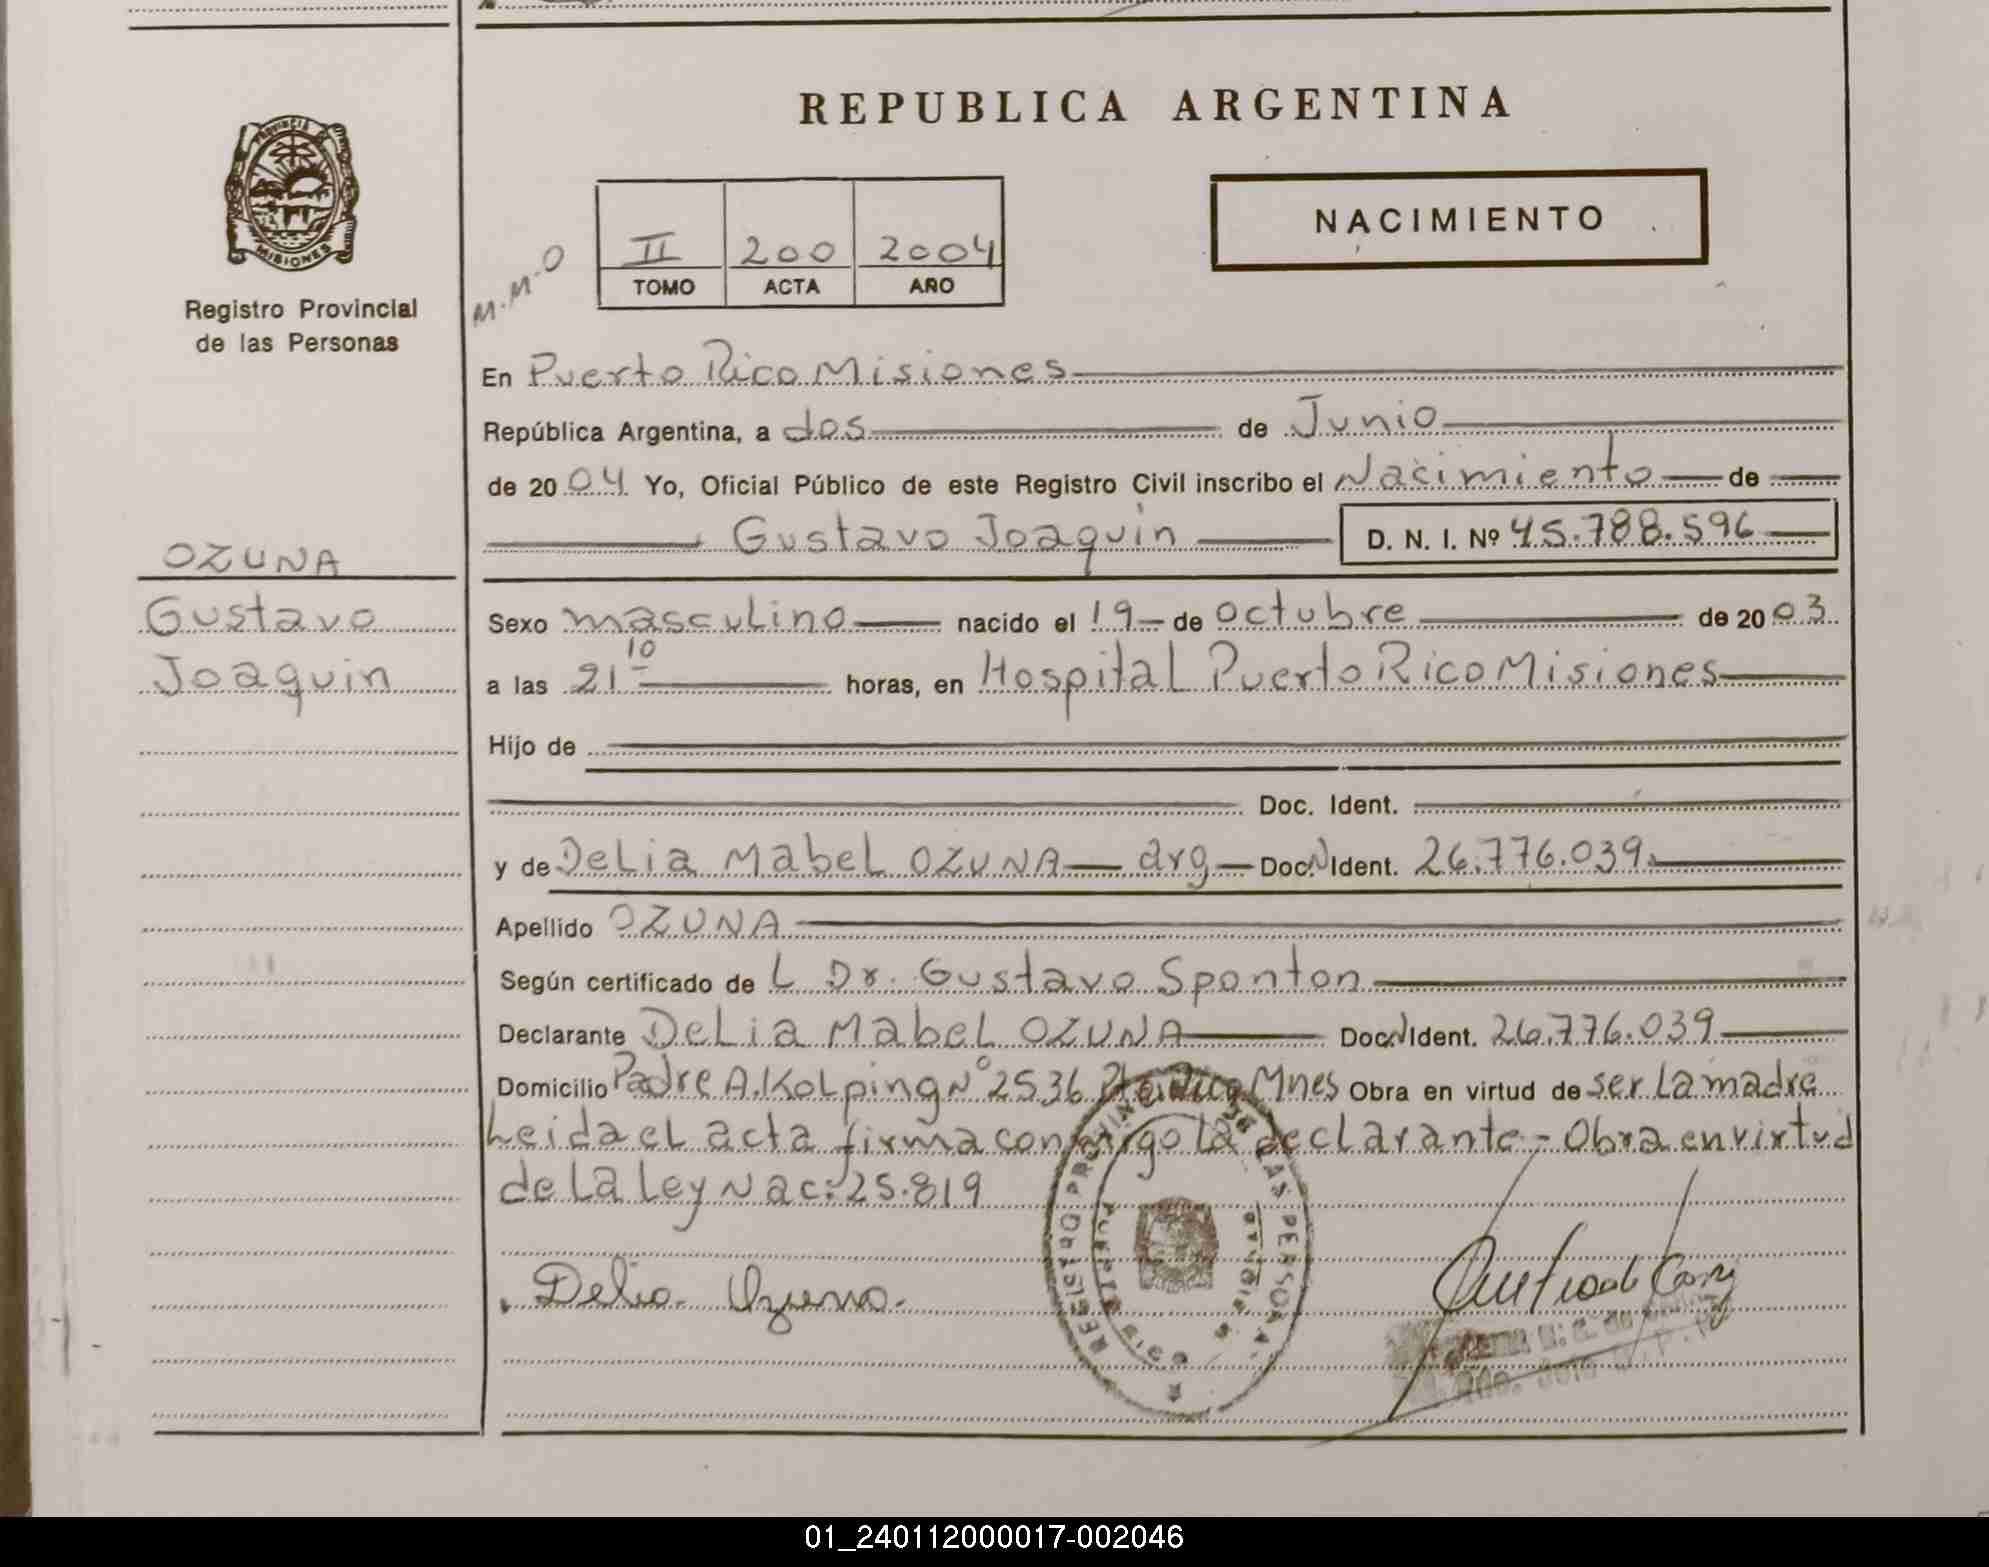 REPUBLICA ARGENTINA
PROVINCIA DE
MISIONES
Registro Provincial
de las Personas
M.M.O
II 200 2004
TOMO ACTA AÑO
NACIMIENTO
En Puerto Rico Misiones
República Argentina, a dos de Junio
de 2004 Yo, Oficial Público de este Registro Civil inscribo el Nacimiento de
Gustavo Joaquin D. N. I. Nº 45.788.596
OZUNA
Gustavo
Joaquin
Sexo masculino nacido el 19 de octubre de 2003
a las 21 10 horas, en Hospital Puerto Rico Misiones
Hijo de
Doc. Ident.
y de Delia Mabel OZUNA arg Doc. N Ident. 26.776.039
Apellido OZUNA
Según certificado de L Dr. Gustavo Sponton
Declarante Delia Mabel OZUNA Doc. N Ident. 26.776.039
Domicilio Padre A. Kolping Nº 2536 Pto Rico Mnes Obra en virtud de ser la madre
Leida el acta firma conmigo la declarante - Obra en virtud
de la Ley Nac: 25.819
Delia Ozuna
REGISTRO PROVINCIAL DE LAS PERSONAS
PUERTO RICO
MISIONES
01_240112000017-002046